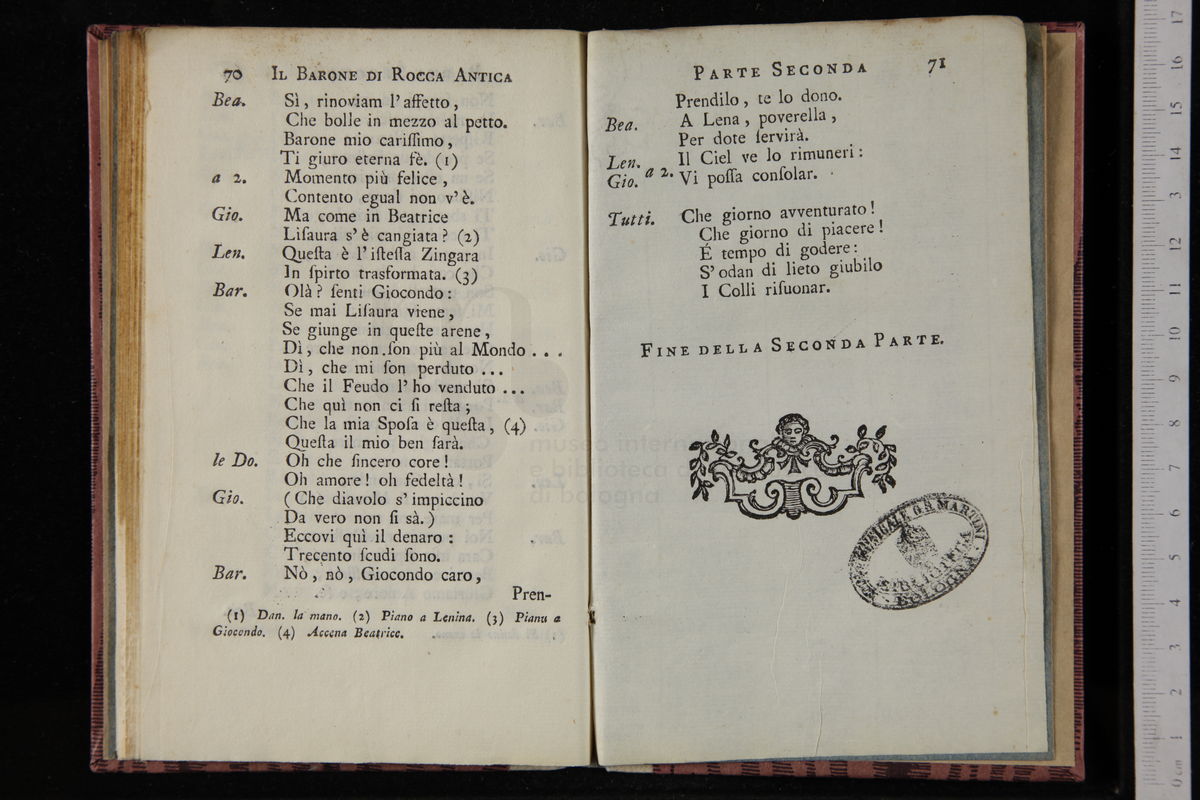 70 IL BARONE DI ROCCA ANTICA
Bea. Sì, rinoviam l'affetto,
Che bolle in mezzo al petto.
Barone mio cariſſimo,
Ti giuro eterna fè. (1)
a 2. Momento più felice,
Contento egual non v'è.
Gio. Ma come in Beatrice
Liſaura s'è cangiata? (2)
Len. Queſta è l'iſteſſa Zingara
In ſpirto trasformata. (3)
Bar. Olà? ſenti Giocondo:
Se mai Liſaura viene,
Se giunge in queſte arene,
Dì, che non ſon più al Mondo . . .
Dì, che mi ſon perduto ...
Che il Feudo l'ho venduto ...
Che quì non ci ſi reſta;
Che la mia Spoſa è queſta, (4)
Queſta il mio ben ſarà.
le Do. Oh che ſincero core!
Oh amore! oh fedeltà!
Gio. (Che diavolo s'impiccino
Da vero non ſi sà.)
Eccovi quì il denaro:
Trecento ſcudi ſono.
Bar. Nò, nò, Giocondo caro,
Pren-
(1) Dan. la mano. (2) Piano a Lenina. (3) Piano a
Giocondo. (4) Accena Beatrice.
PARTE SECONDA 71
Prendilo, te lo dono.
Bea. A Lena, poverella,
Per dote ſervirà.
Len. Il Ciel ve lo rimuneri:
Gio. a 2. Vi poſſa conſolar.
Tutti. Che giorno avventurato!
Che giorno di piacere!
É tempo di godere:
S'odan di lieto giubilo
I Colli riſuonar.
FINE DELLA SECONDA PARTE.
G.B. MARTINI
BIBLIOTECA
BOLOGNA
museo internazionale
e biblioteca della
di bologna
0 cm 1 2 3 4 5 6 7 8 9 10 11 12 13 14 15 16 17